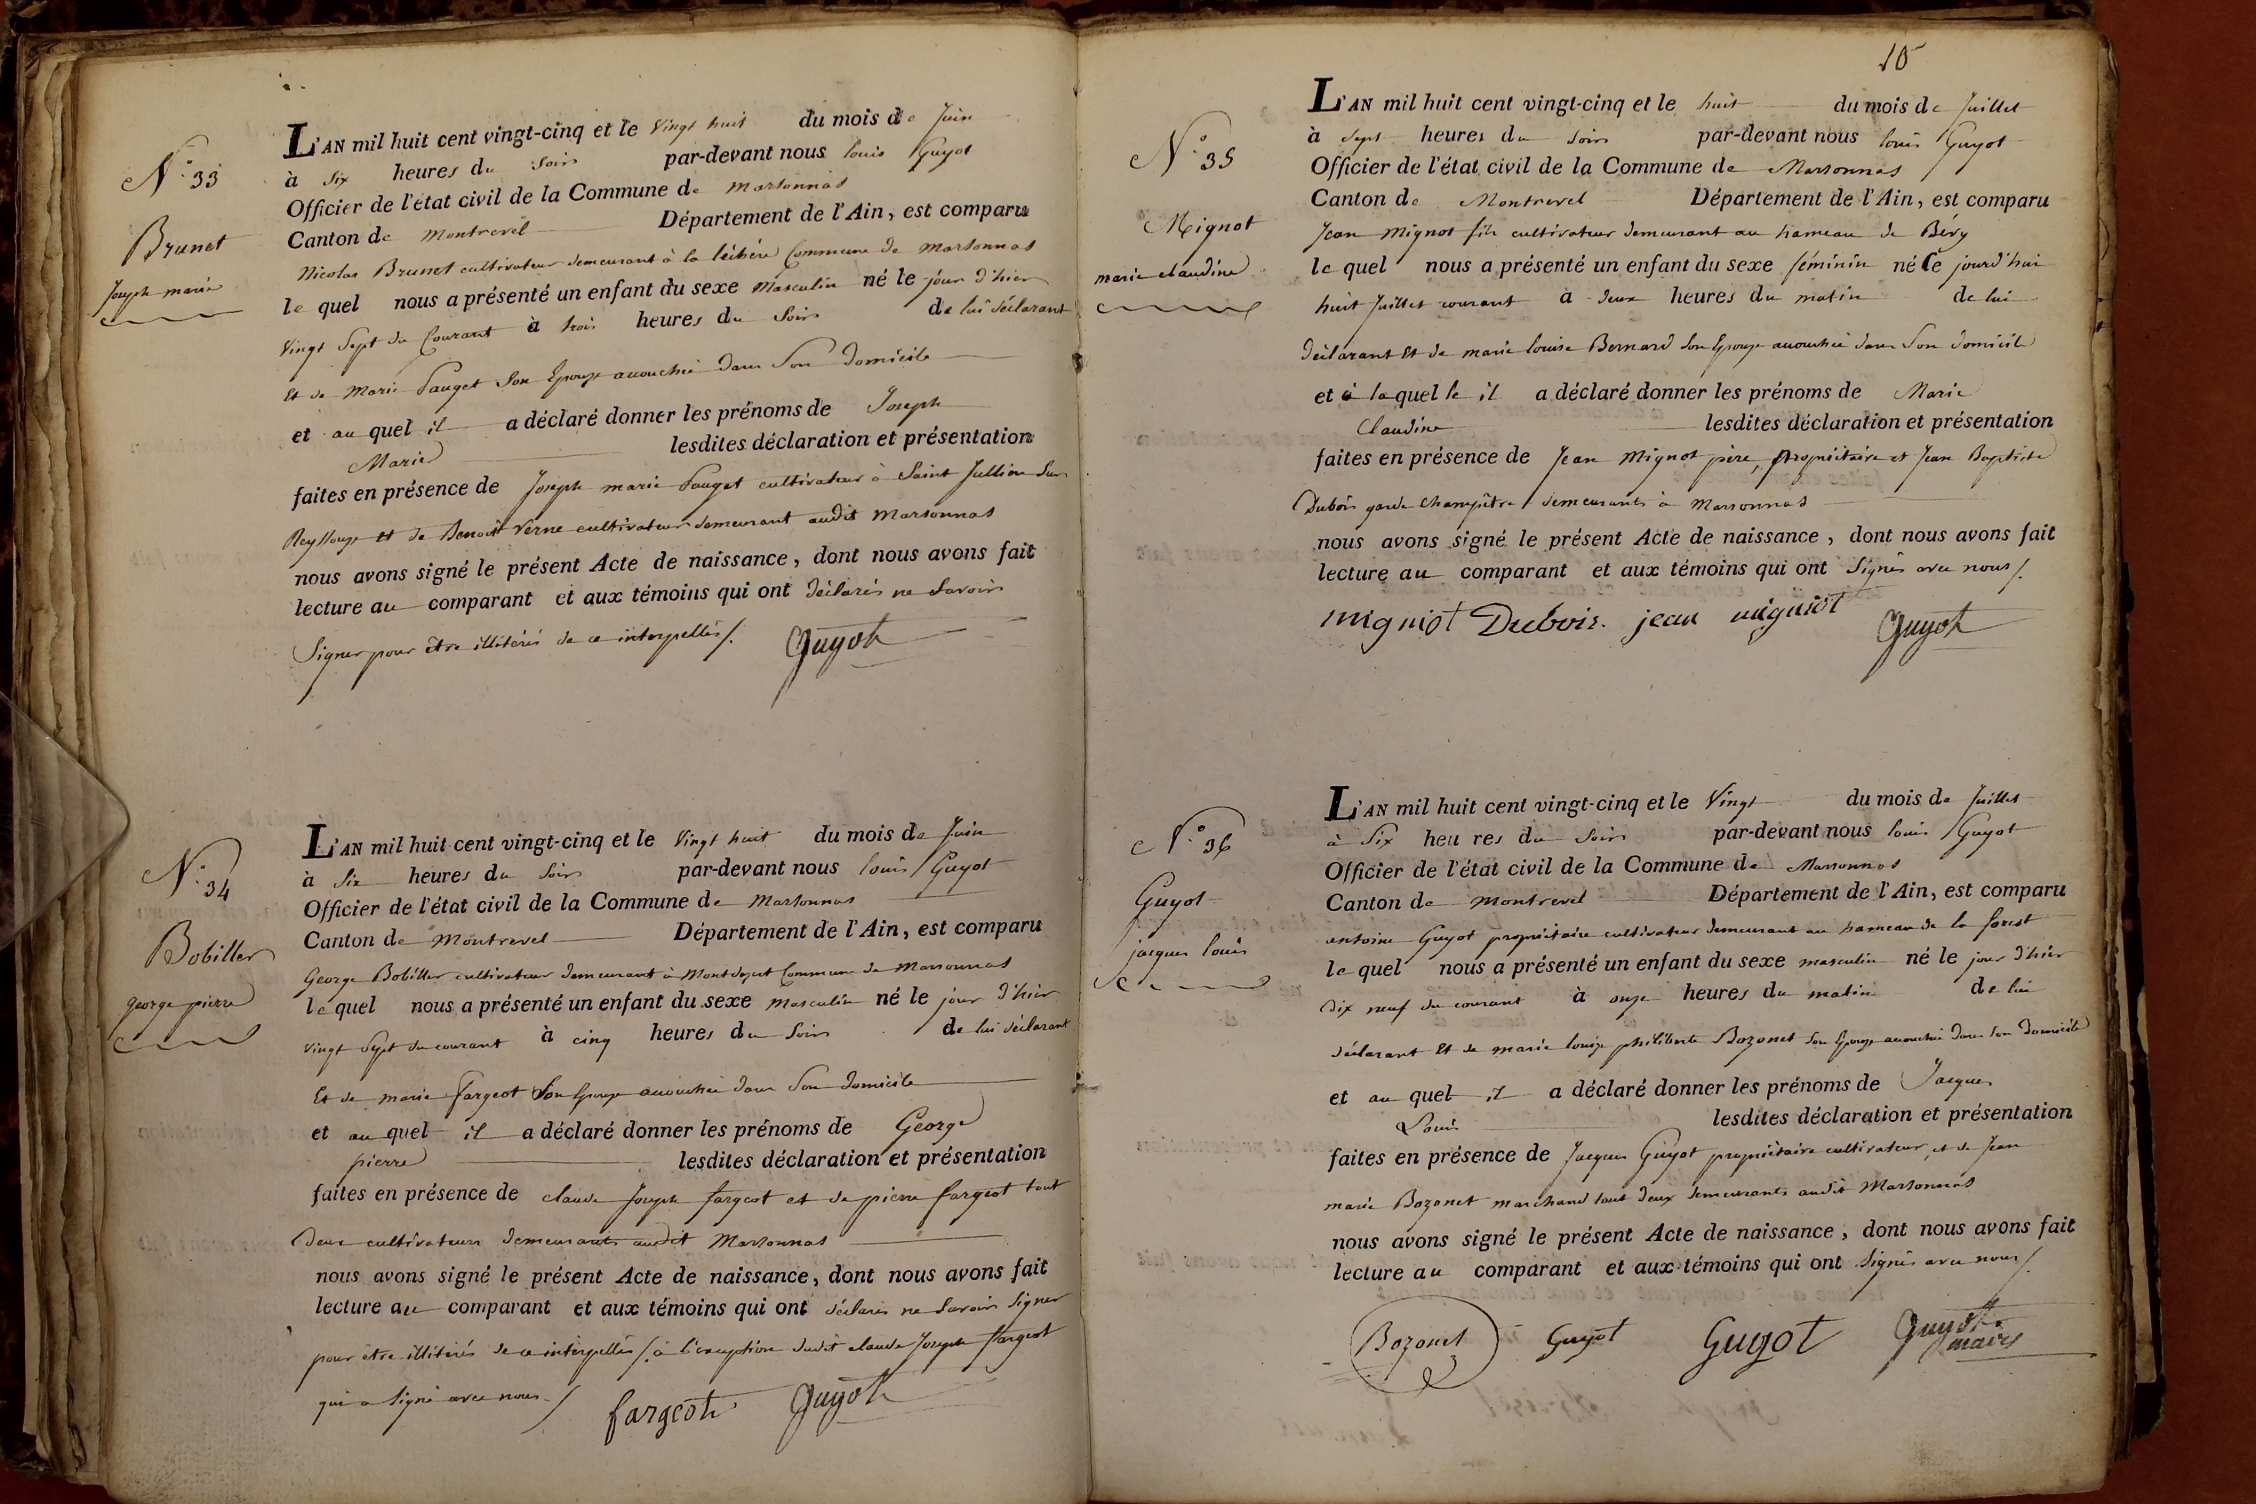 N.° 33
Brunet
Joseph marie
L'AN mil huit cent vingt-cinq et le Vingt huit du mois de Juin
à Six heures du Soir par-devant nous louis Guyot
Officier de l'état civil de la Commune de marsonnas
Canton de montrevel Département de l'Ain, est comparu
Nicolas Brunet cultivateur demeurant à la léchère Commune de marsonnas
le quel nous a présenté un enfant du sexe masculin né le jour d'hier
Vingt Sept du Courant à trois heures du Soir de lui déclarant
Et de Marie Pauget Son Epouse accouchée dans Son domicile
et au quel il a déclaré donner les prénoms de Joseph
Marie lesdites déclaration et présentation
faites en présence de Joseph marie Pauget cultivateur à Saint Jullien Sur
Reyssouze et de Benoit Verne cultivateur demeurant audit marsonnas
nous avons signé le présent Acte de naissance, dont nous avons fait
lecture au comparant et aux témoins qui ont déclarés ne Savoir
Signer pour être illitérés de ce interpellés /.
Guyot
N.° 34
Bobiller
george pierre
L'AN mil huit cent vingt-cinq et le Vingt huit du mois de Juin
à Six heures du Soir par-devant nous louis Guyot
Officier de l'état civil de la Commune de marsonnas
Canton de Montrevel Département de l'Ain, est comparu
George Bobiller cultivateur demeurant à Commune de Marsonnas
le quel nous a présenté un enfant du sexe masculin né le jour d'hier
vingt Sept du courant à cinq heures du Soir de lui déclarant
Et de marie fargeot Son Epouse accouchée dans Son domicile
et au quel il a déclaré donner les prénoms de George
pierre lesdites déclaration et présentation
faites en présence de claude Joseph fargeot et de pierre fargeot tout
deux cultivateurs demeurants audit Marsonnas
nous avons signé le présent Acte de naissance, dont nous avons fait
lecture au comparant et aux témoins qui ont déclarés ne Savoir Signer
pour être illitérés de ce interpellés /. à l'exception dudit claude Joseph fargeot
qui a signé avec nous /
fargeot Guyot
N.° 35
Mignot
marie claudine
L'AN mil huit cent vingt-cinq et le huit du mois de Juillet
à Sept heures du Soir par-devant nous louis Guyot
Officier de l'état civil de la Commune de Marsonnas
Canton de Montrevel Département de l'Ain, est comparu
Jean Mignot fils cultivateur demeurant au hameau de Béry
le quel nous a présenté un enfant du sexe féminin né Ce jourd'hui
huit Juillet courant à deux heures du matin de lui
déclarant Et de marie louise Bernard Son Epouse accouchée dans Son domicile
et à laquel le il a déclaré donner les prénoms de Marie
Claudine lesdites déclaration et présentation
faites en présence de Jean Mignot père, propriétaire et Jean Baptiste
Dubois garde champêtre demeurants à Marsonnas
nous avons signé le présent Acte de naissance, dont nous avons fait
lecture au comparant et aux témoins qui ont Signés avec nous /.
migniot Dubois. jean migniot Guyot
N.° 36
Guyot
jacques louis
L'AN mil huit cent vingt-cinq et le Vingt du mois de Juillet
à Six heu res du Soir par-devant nous louis Guyot
Officier de l'état civil de la Commune de Marsonnas
Canton de montrevel Département de l'Ain, est comparu
antoine Guyot propriétaire cultivateur demeurant au hameau de la forest
le quel nous a présenté un enfant du sexe masculin né le jour d'hier
dix neuf du courant à onze heures du matin de lui
déclarant Et de marie louise philiberte Bozonet Son Epouse accouchée dans Son domicile
et au quel il a déclaré donner les prénoms de Jacques
Louis lesdites déclaration et présentation
faites en présence de Jacques Guyot propriétaire cultivateur, et de Jean
marie Bozonet marchand tout deux demeurants audit Marsonnas
nous avons signé le présent Acte de naissance, dont nous avons fait
lecture au comparant et aux témoins qui ont Signés avec nous /.
Bozonet Guyot Guyot Guyot
maire